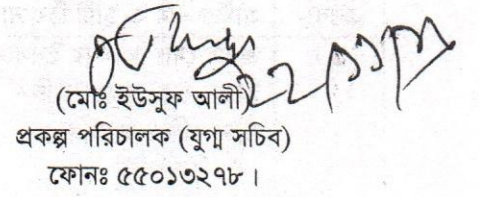 (মোঃ ইউসুফ আলী)
প্রকল্প পরিচালক (যুগ্ম সচিব)
ফোনঃ ৫৫০১৩২৭৮।